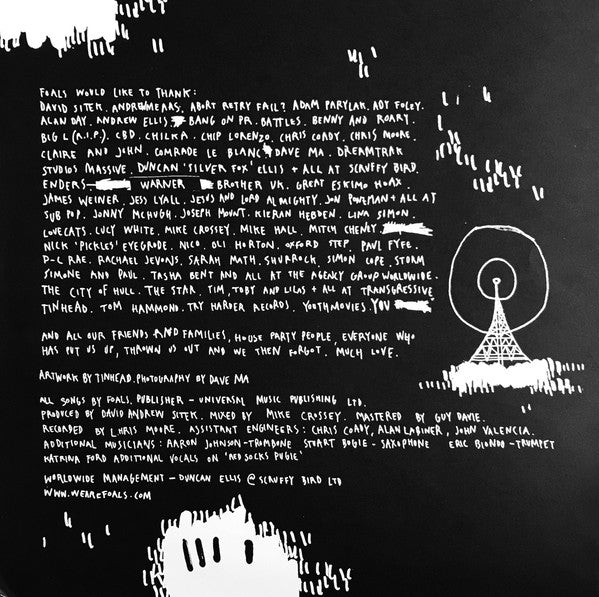 FOALS WOULD LIKE TO THANK:
DAVID SITEK. ANDREW MEARS. ABORT RETRY FAIL? ADAM PARYLAK. ADY FOLEY.
ALAN DAY. ANDREW ELLIS. BANG ON PR. BATTLES. BENNY AND RORY.
BIG L (R.I.P). CBD. CHILKA. CHIP LORENZO. CHRIS COADY. CHRIS MOORE.
CLAIRE AND JOHN. COMRADE LE BLANC. DAVE MA. DREAMTRAK
STUDIOS MASSIVE. DUNCAN 'SILVER FOX' ELLIS + ALL AT SCRUFFY BIRD.
ENDERS WARNER BROTHER UK. GREAT ESKIMO HOAX.
JAMES WEINER. JESS LYALL. JESUS AND LORD ALMIGHTY. JON POREMAN + ALL AT
SUB POP. JONNY MCHUGH. JOSEPH MOUNT. KIERAN HEBDEN. LINA SIMON.
LOVECATS. LUCY WHITE. MIKE CROSSEY. MIKE HALL. MITCH CHENEY.
NICK 'PICKLES' EYEGRODE. NICO. OLI HORTON. OXFORD STEP. PAUL FYFE.
P-L RAE. RACHAEL JEVONS. SARAH MATH. SHURROCK. SIMON COPE. STORM
SIMONE AND PAUL. TASHA BENT AND ALL AT THE AGENCY GROUP WORLDWIDE.
THE CITY OF HULL. THE STAR. TIM, TOBY AND LILAS + ALL AT TRANSGRESSIVE
TINHEAD. TOM HAMMOND. TRY HARDER RECORDS. YOUTHMOVIES. YOU
AND ALL OUR FRIENDS AND FAMILIES, HOUSE PARTY PEOPLE, EVERYONE WHO
HAS PUT US UP, THROWN US OUT AND WE THEN FORGOT. MUCH LOVE.
ARTWORK BY TINHEAD. PHOTOGRAPHY BY DAVE MA
ALL SONGS BY FOALS. PUBLISHER - UNIVERSAL MUSIC PUBLISHING LTD.
PRODUCED BY DAVID ANDREW SITEK. MIXED BY MIKE CROSSEY. MASTERED BY GUY DAVIE.
RECORDED BY CHRIS MOORE. ASSISTANT ENGINEERS: CHRIS COADY, ALAN LABINER, JOHN VALENCIA.
ADDITIONAL MUSICIANS: AARON JOHNSON - TROMBONE STUART BOGIE - SAXOPHONE ERIC BIONDO - TRUMPET
KATRINA FORD ADDITIONAL VOCALS ON 'RED SOCKS PUGIE'
WORLDWIDE MANAGEMENT - DUNCAN ELLIS @ SCRUFFY BIRD LTD
WWW.WEAREFOALS.COM